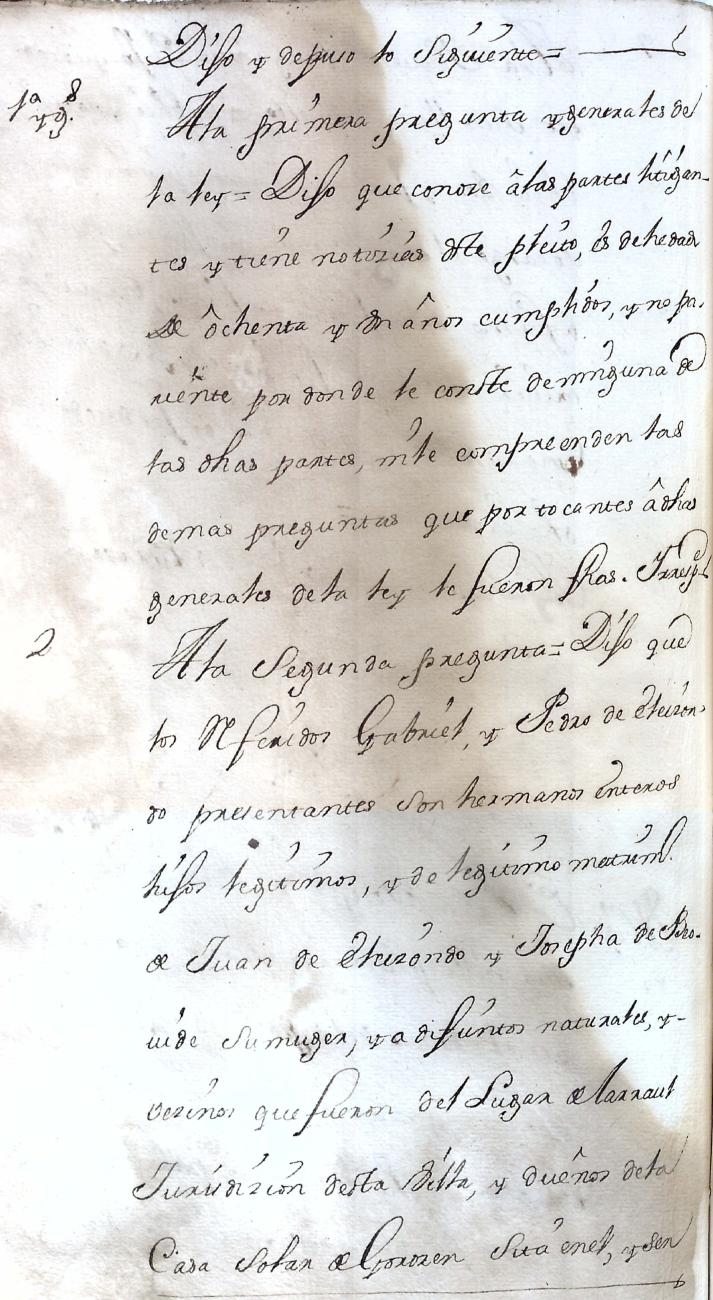 Dijo y depuso lo Siguiente=
1ª y g.s
A la primera pregunta y generales de
la ley= Dijo que conoze â las partes litigan-
tes y tiene notizias deste pleito, es de hedad
de ôchenta y un años cumplidos, y no pa-
riente por donde le conste de ninguna de
las dhas partes, ni le compreenden las
demas preguntas que por tocantes â dhas
generales de la ley le fueron fhas.
2
A la Segunda pregunta= Dijo que
los Referidos Gabriel, y Pedro de Elizon-
do presentantes son hermanos enteros
hijos legitimos, y de legitimo matrim.
de Juan de Elizondo y Josepha de
su muger, ya difuntos naturales, y-
vezinos que fueron del Lugar de Larraul
Jurisdizion desta Villa, y dueños de la
Casa Solar de Gorozen Sita en el, y en